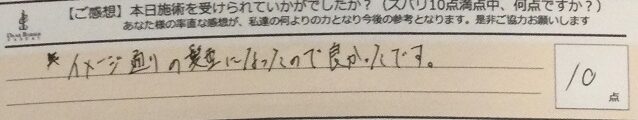 【ご感想】本日施術を受けられていかがでしたか？（ズバリ10点満点中、何点ですか？）
あなた様の率直な感想が、私達の何よりの力となり今後の参考となります。是非ご協力お願いします
イメージ通りの髪型になったので良かったです。
10
点